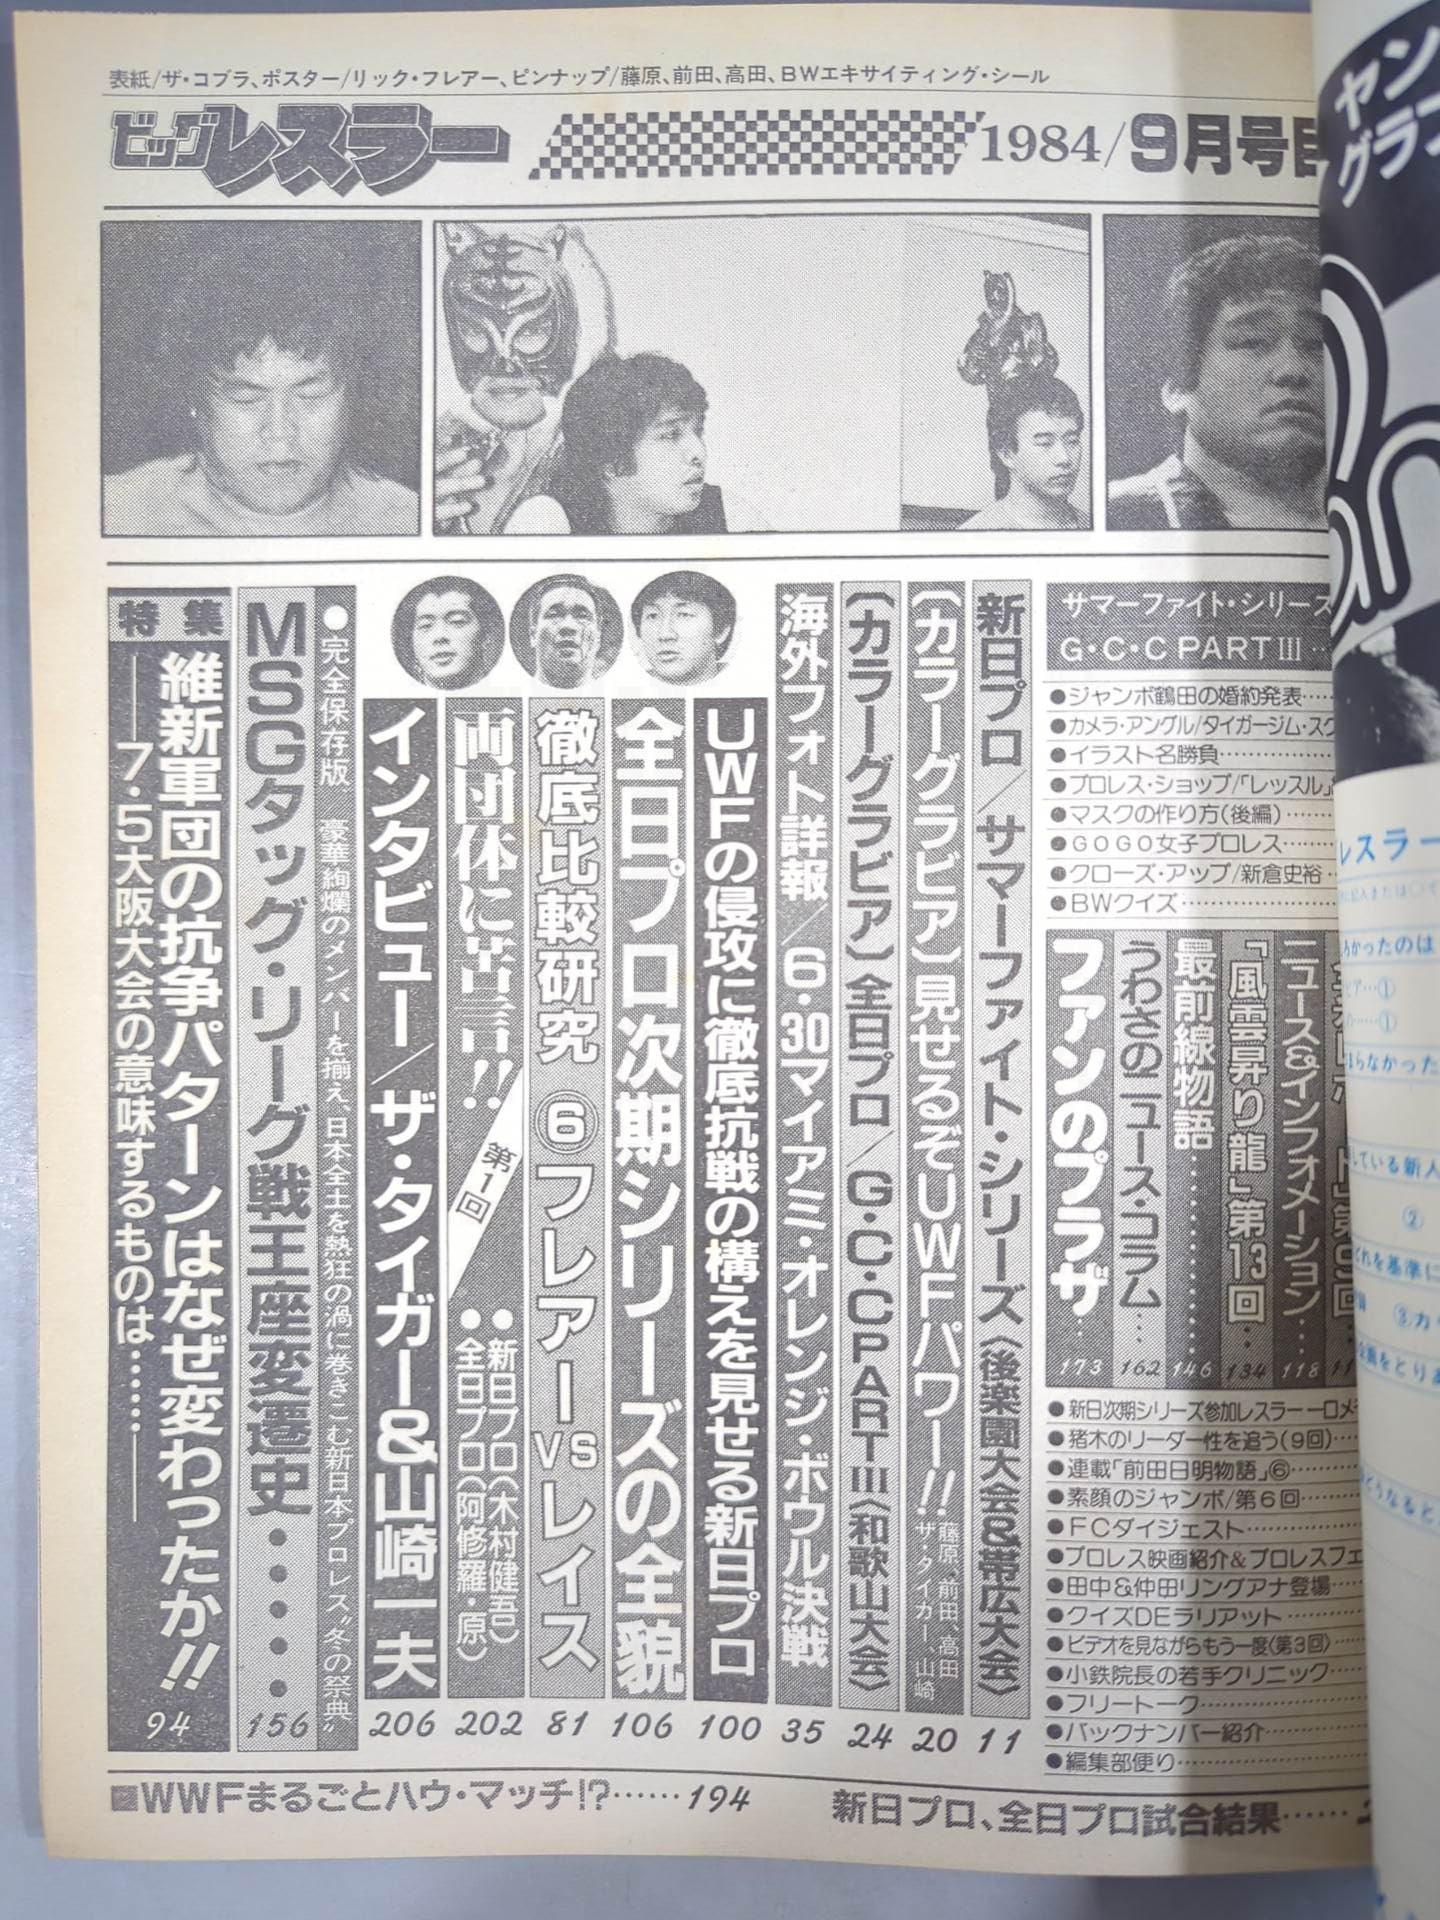 表紙/ザ・コブラ、ポスター/リック・フレアー、ピンナップ/藤原、前田、高田、BWエキサイティング・シール
ビッグレスラー
1984/9月号目
サマーファイト・シリーズ
G・C・C PART III…
●ジャンボ鶴田の婚約発表……
●カメラ・アングル/タイガージム・スク
●イラスト名勝負……………
●プロレス・ショップ/「レッスル」
●マスクの作り方(後編)……
●GOGO女子プロレス……
●クローズ・アップ/新倉史裕…
●BWクイズ………………
ニュース&インフォメーション…118
「風雲昇り龍」第13回…134
最前線物語……146
うわさのニュース・コラム…162
ファンのプラザ…173
●新日次期シリーズ参加レスラー一口メモ
●猪木のリーダー性を追う(9回)…
●連載「前田日明物語」⑥………
●素顔のジャンボ/第6回………
●FCダイジェスト……………
●プロレス映画紹介&プロレスフェ
●田中&仲田リングアナ登場……
●クイズDEラリアット…………
●ビデオを見ながらもう一度(第3回)…
●小鉄院長の若手クリニック……
●フリートーク………………
●バックナンバー紹介…………
●編集部便り………………
新日プロ/サマーファイト・シリーズ〈後楽園大会&帯広大会〉 11
〔カラーグラビア〕見せるぞUWFパワー!! 藤原、前田、高田、ザ・タイガー、山崎 20
〔カラーグラビア〕全日プロ/G・C・C PART III〈和歌山大会〉 24
海外フォト詳報/6・30マイアミ・オレンジ・ボウル決戦 35
UWFの侵攻に徹底抗戦の構えを見せる新日プロ 100
全日プロ次期シリーズの全貌 106
徹底比較研究 ⑥フレアーVSレイス 81
両団体に苦言!! 第1回 ●新日プロ(木村健吾) ●全日プロ(阿修羅・原) 202
インタビュー/ザ・タイガー&山崎一夫 206
●完全保存版/豪華絢爛のメンバーを揃え、日本全土を熱狂の渦に巻きこむ新日本プロレス“冬の祭典”
MSGタッグ・リーグ戦王座変遷史……156
特集
維新軍団の抗争パターンはなぜ変わったか!!
――7・5大阪大会の意味するものは……―― 94
WWFまるごとハウ・マッチ!?……194
新日プロ、全日プロ試合結果……
ヤン
グラ
レスラー
ろかったのは
ピア…①
……①
まらなかった
している新人
②
どれを基準に
③カ
企画をとりあ
どうなると